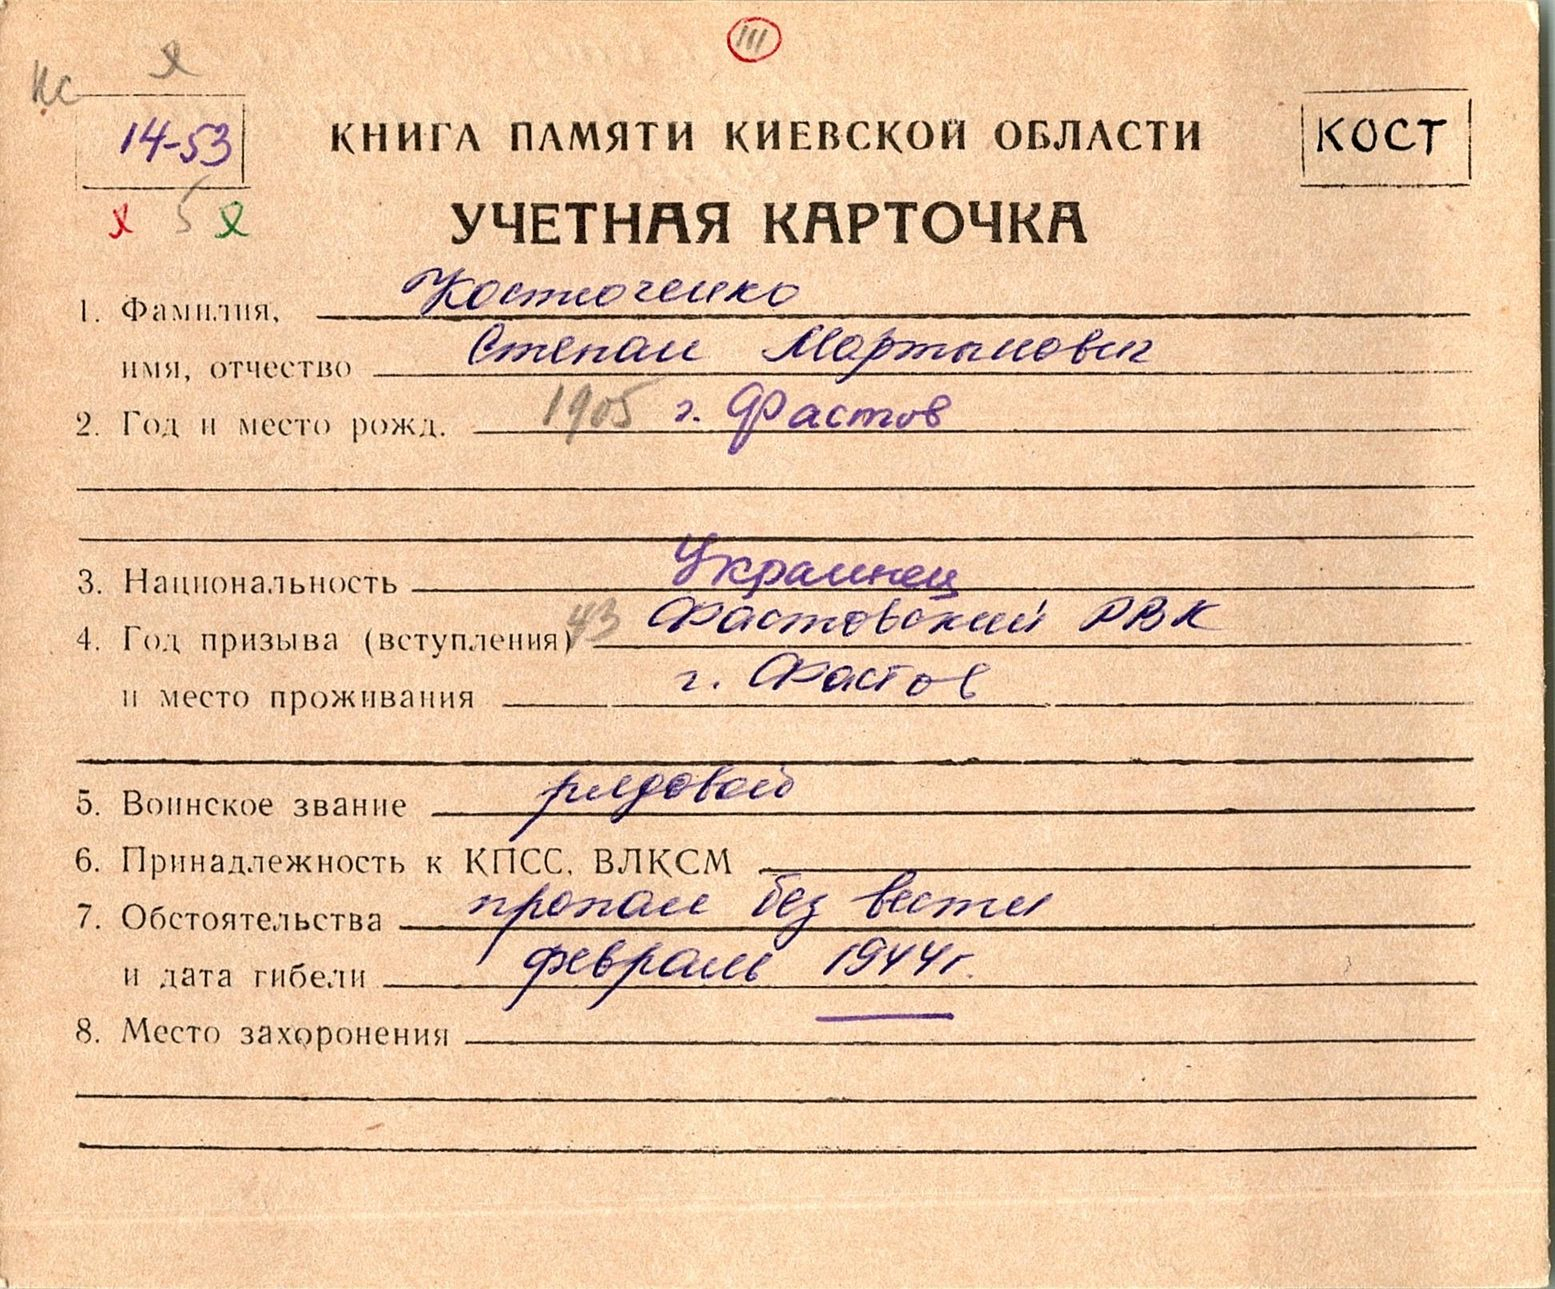 III
14-53
КНИГА ПАМЯТИ КИЕВСКОЙ ОБЛАСТИ
КОСТ
5
УЧЕТНАЯ КАРТОЧКА
1. Фамилия, Костюченко
имя, отчество Степан Мартынович
2. Год и место рожд. 1905 г. Фастов
3. Национальность Украинец
4. Год призыва (вступления) 43 Фастовский РВК
и место проживания г. Фастов
5. Воинское звание рядовой
6. Принадлежность к КПСС, ВЛКСМ
7. Обстоятельства пропал без вести
и дата гибели февраль 1944г.
8. Место захоронения